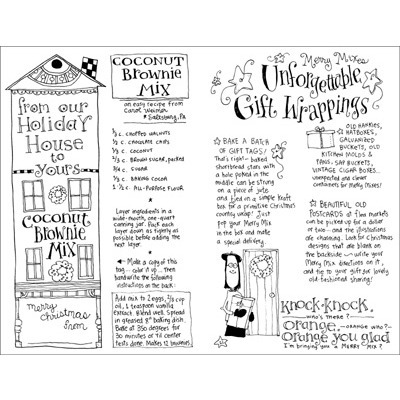 from our
Holiday
House
to
yours
Coconut
Brownie
Mix
merry
christmas
from
COCONUT
Brownie
MIX
an easy recipe from
Carol Weimer
Saltsburg, PA
1/2 c. CHOPPED WALNUTS
1/2 c. CHOCOLATE CHIPS
1/2 c. COCONUT
2/3 c. BROWN SUGAR, packed
3/4 c. SUGAR
1/3 c. BAKING COCOA
1 1/2 c. ALL-PURPOSE FLOUR
Layer ingredients in a
wide-mouth, one-quart
canning jar. Pack each
layer down as tightly as
possible before adding the
next layer.
Make a copy of this
tag -- color it up... then
handwrite the following
instructions on the back:
Add mix to 2 eggs, 2/3 cup
oil, 1 teaspoon vanilla
extract. Blend well. Spread
in greased 8" baking dish.
Bake at 350 degrees for
30 minutes or til center
tests done. Makes 12 brownies.
Merry Mixes
Unforgettable
Gift Wrappings
OLD HANKIES,
HATBOXES,
GALVANIZED
BUCKETS, OLD
KITCHEN MOLDS &
PANS, SAP BUCKETS,
VINTAGE CIGAR BOXES...
unexpected and clever
containers for Merry Mixes!
BAKE A BATCH
OF GIFT TAGS!
That's right -- baked
shortbread stars with
a hole poked in the
middle can be strung
on a piece of jute
and tied on a simple kraft
box for a primitive Christmas
country wrap! Just
pop your Merry Mix
in the box and make
a special delivery.
BEAUTIFUL OLD
POSTCARDS at flea markets
can be picked up for a dollar
or two -- and the illustrations
are charming. Look for Christmas
designs that are blank on
the backside -- write your
Merry Mix directions on it,
and tie to your gift for lovely
old-fashioned sharing!
KNOCK-KNOCK.
WHO'S THERE?
orange.
ORANGE WHO?
orange you glad
I'm bringing you a MERRY MIX?